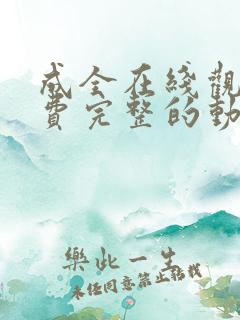 成全在线觀
費完整的動
樂此一生
未经同意禁止转载